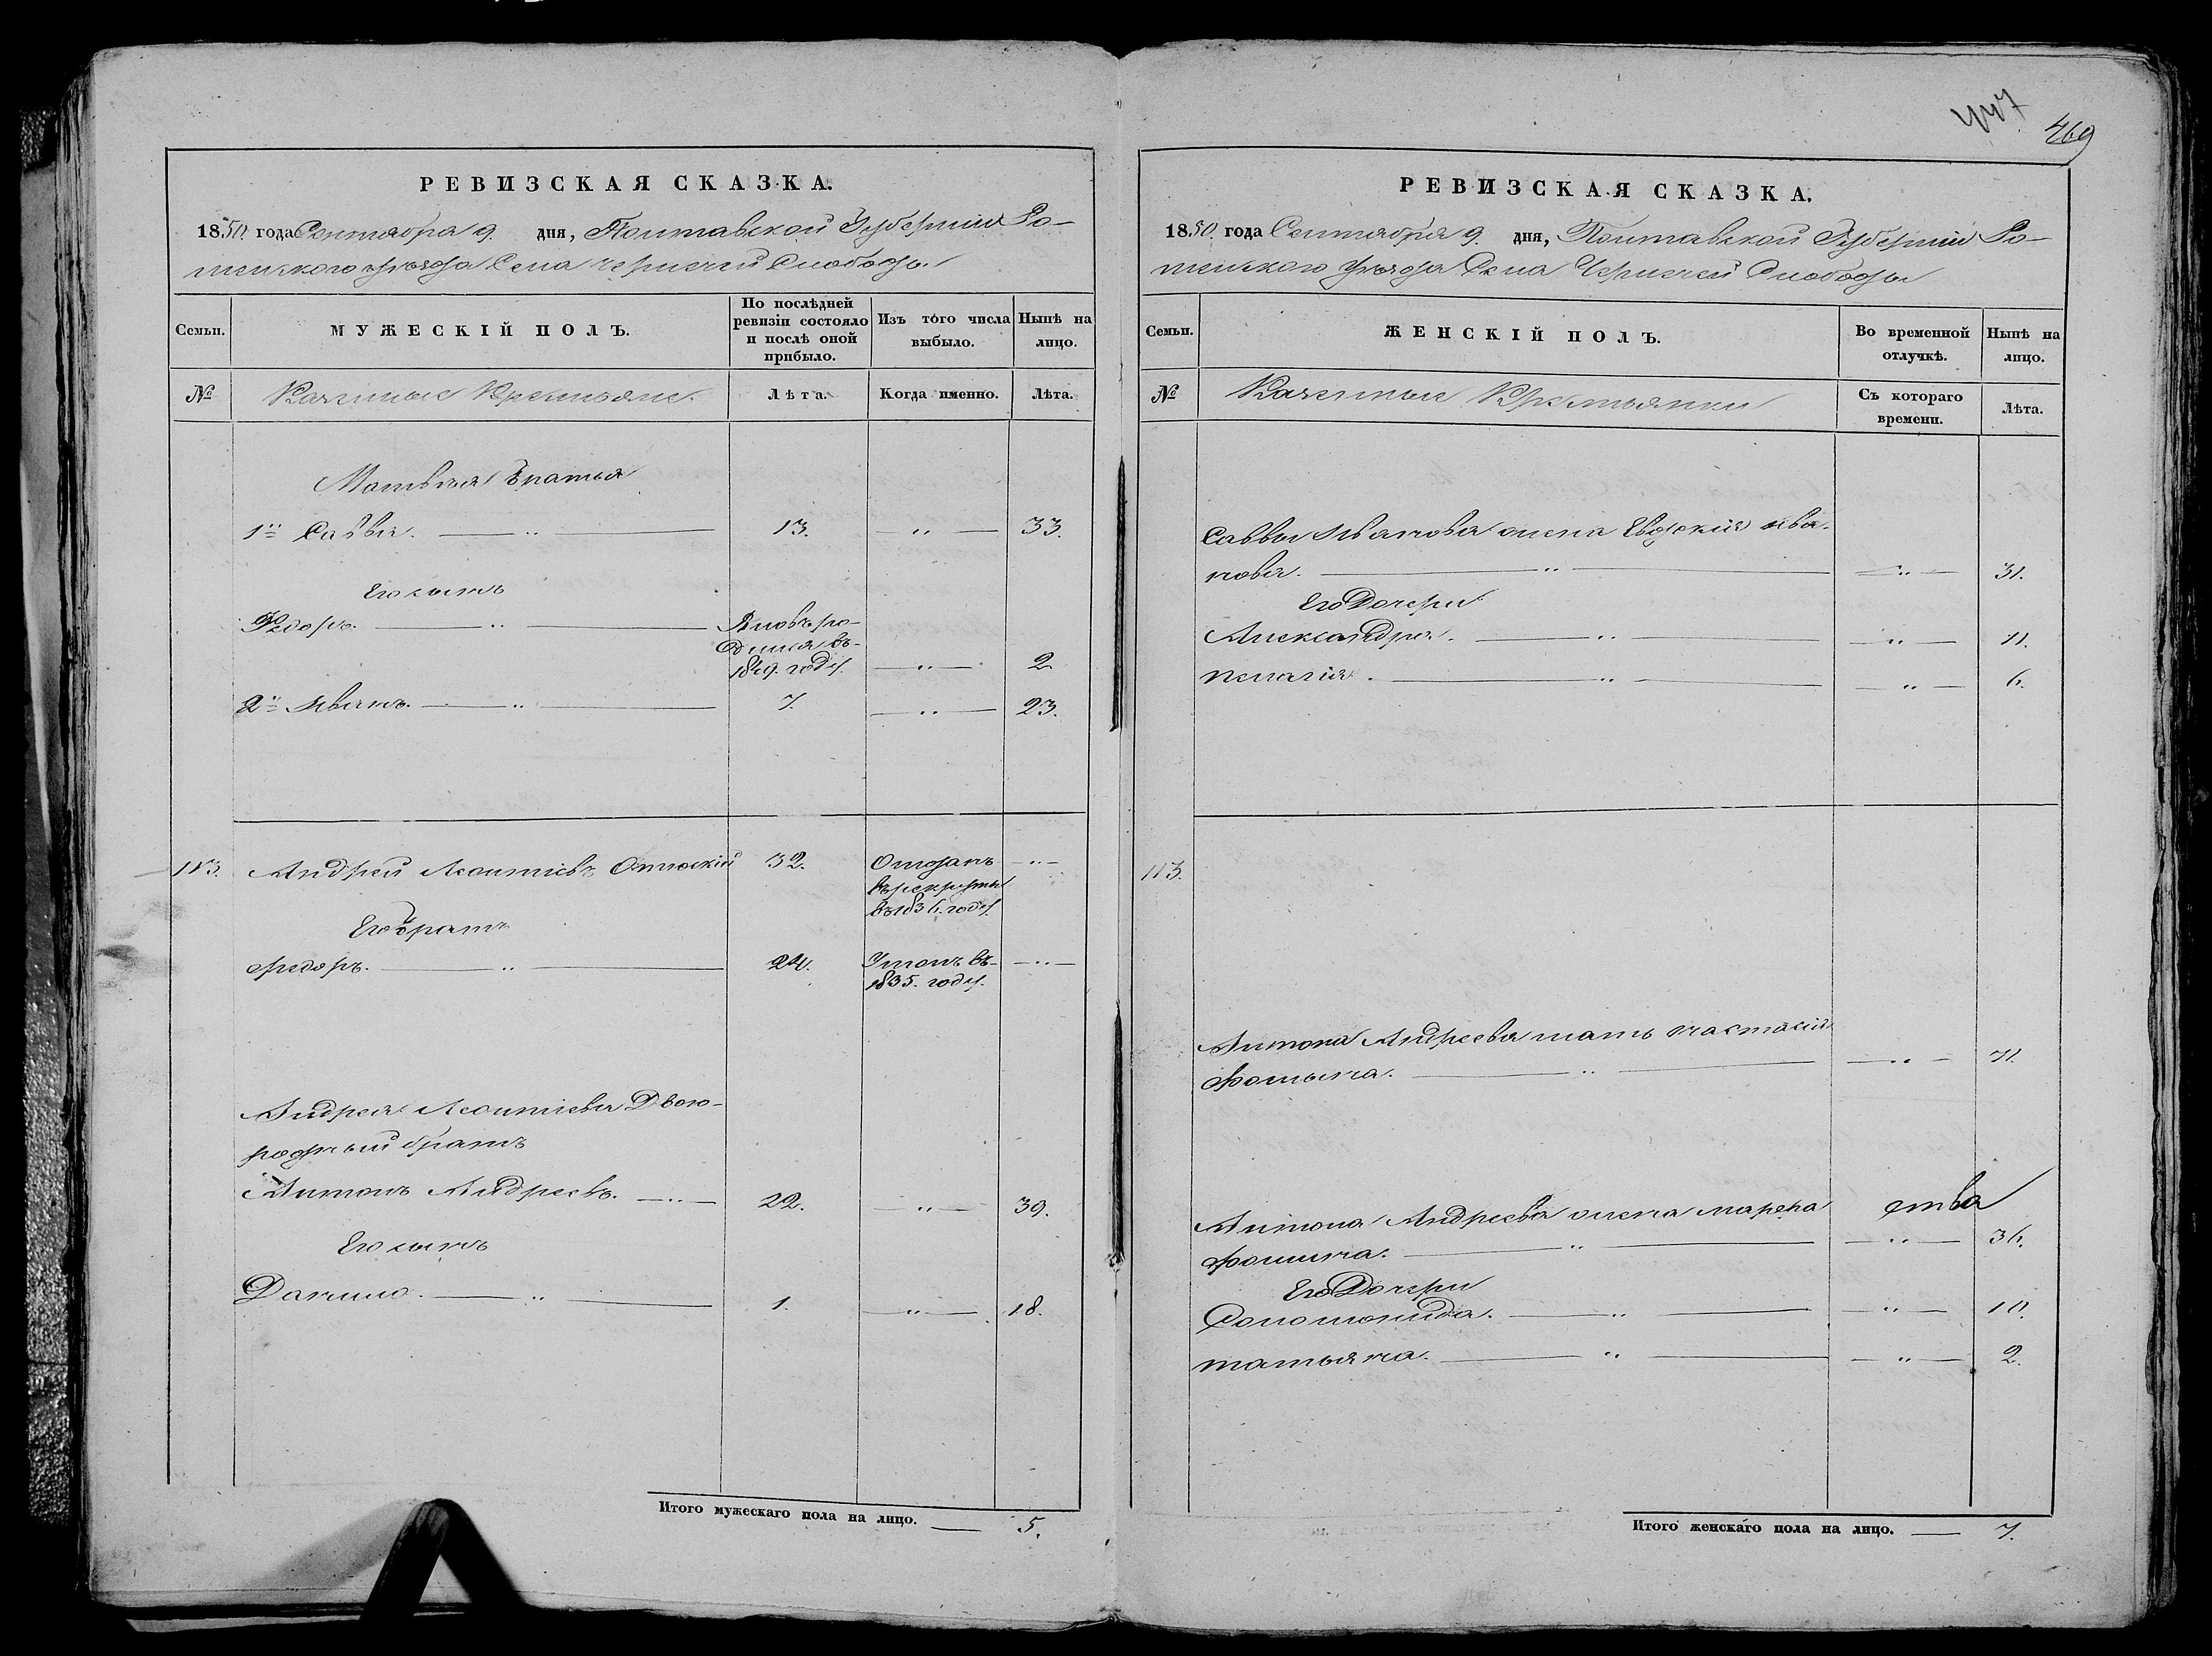 447
469
РЕВИЗСКАЯ СКАЗКА.
1850 года Сентября 9. дня, Полтавской Губернии Ро-
менского уезда Села Чернечей Слободы.
Семьи.
МУЖЕСКІЙ ПОЛЪ.
По послѣдней ревизіи состояло и послѣ оной прибыло.
Изъ того числа выбыло.
Нынѣ на лицо.
№
Казенные Крестьяне.
Лѣта.
Когда именно.
Лѣта.
Матвѣя братья
1й Савва. 13. 33.
Его сынъ
Федоръ. Вновь ро-
дился въ
1849. году. 2
2й Иванъ. 7. 23.
113. Андрей Леонтіевъ 32. Отданъ
въ рекруты
въ 1836. году.
Его братъ
Федоръ. 24. Умонъ въ
1835. году.
Андрея Леонтіева Двою-
родный братъ
Антонъ Андреевъ. 22. 39.
Его сынъ
Данило. 1. 18.
Итого мужескаго пола на лицо. 5.
РЕВИЗСКАЯ СКАЗКА.
1850 года Сентября 9. дня, Полтавской Губерніи Ро-
менского уезда Села Чернечей Слободы
Семьи.
ЖЕНСКІЙ ПОЛЪ.
Во временной отлучкѣ.
Нынѣ на лицо.
№
Казенные Крестьянки
Съ котораго времени.
Лѣта.
Саввы Иванова жена Евдокія Ива-
нова. 31.
Его Дочери
Александра. 11.
Пелагія. 6.
113.
Антона Андреева мать Настасія
Фомина. 71.
Антона Андреева жена Марфа
Фомина. 36.
Его Дочери
Соломонида. 10.
Татьяна. 2.
Итого женскаго пола на лицо. 7.